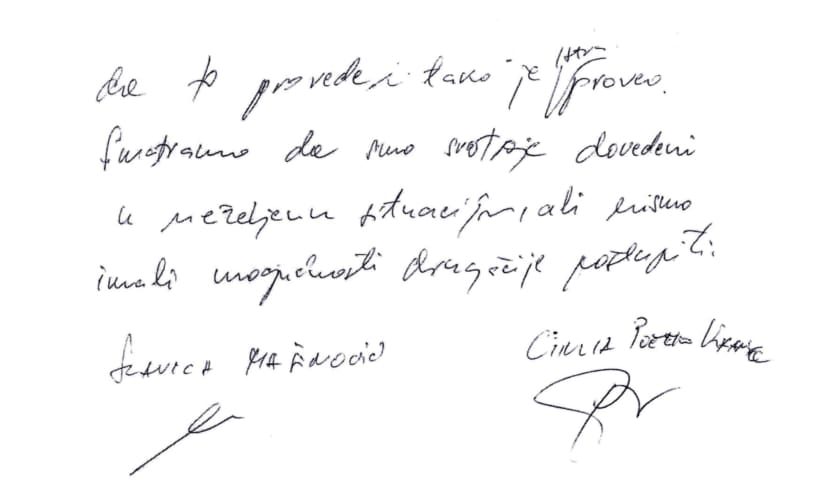 da to provede i tako je isti proveo.
Smatramo da smo svotoje dovedeni
u neželjenu situaciju, ali nismo
imali mogućnosti drugačije postupiti.
SLAVICA